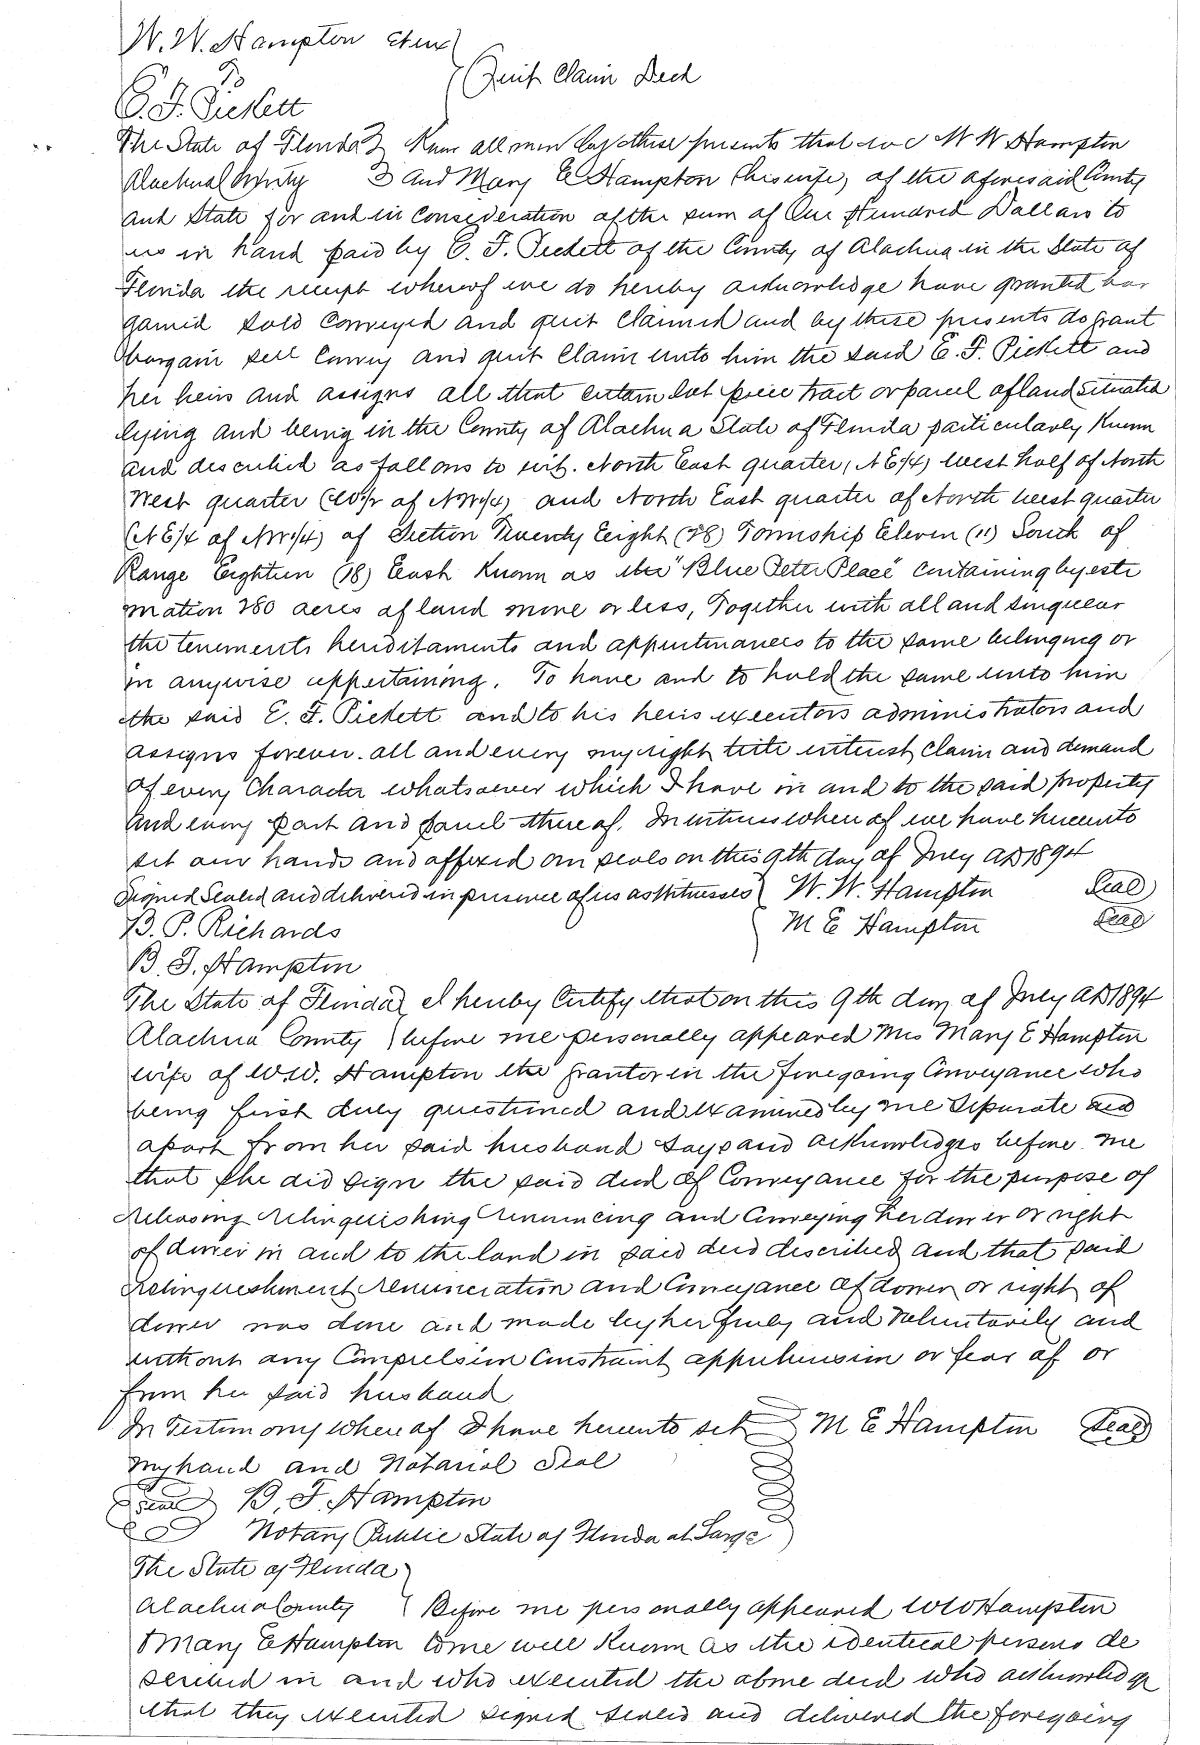 W. W. Hampton et ux
To
Quit Claim Deed
E. F. Pickett
The State of Florida Know all men by these presents that we W W Hampton
Alachua County and Mary E Hampton (his wife) of the aforesaid County
and State for and in consideration of the sum of One Hundred Dollars to
us in hand paid by E. F. Pickett of the County of Alachua in the State of
Florida the receipt whereof we do hereby acknowledge have granted bar
gained sold conveyed and quit claimed and by these presents do grant
bargain sell convey and quit claim unto him the said E. F. Pickett and
her heirs and assigns all that certain lot piece tract or parcel of land situated
lying and being in the County of Alachua State of Florida particularly Known
and described as follows to wit. North East quarter (N E 1/4) West half of North
West quarter (W 1/2 of NW 1/4) and North East quarter of North west quarter
(N E 1/4 of NW 1/4) of Section Twenty Eight (28) Township Eleven (11) South of
Range Eighteen (18) East Known as the "Blue Peter Place" containing by esti
mation 280 acres of land more or less, Together with all and singular
the tenements hereditaments and appurtenances to the same belonging or
in anywise appertaining. To have and to hold the same unto him
the said E. F. Pickett and to his heirs executors administrators and
assigns forever. all and every my right title interest claim and demand
of every Character whatsoever which I have in and to the said property
and every part and parcel thereof. In witness whereof we have hereunto
set our hands and affixed our seals on this 9th day of July AD 1894
Signed Sealed and delivered in presence of us as Witnesses W. W. Hampton Seal
B. P. Richards M E Hampton Seal
B. F. Hampton
The State of Florida I hereby Certify that on this 9th day of July AD 1894
Alachua County before me personally appeared Mrs Mary E Hampton
wife of W.W. Hampton the grantor in the foregoing Conveyance who
being first duly questioned and examined by me Separate and
apart from her said husband says and acknowledges before me
that she did sign the said deed of Conveyance for the purpose of
releasing relinquishing renouncing and Conveying her dower or right
of dower in and to the land in said deed described and that said
relinquishment renunciation and Conveyance of dower or right of
dower was done and made by her freely and Voluntarily and
without any Compulsion Constraint apprehension or fear of or
from her said husband
In Testimony whereof I have hereunto set M E Hampton Seal
my hand and Notarial Seal
Seal B. F. Hampton
Notary Public State of Florida at Large
The State of Florida
Alachua County Before me personally appeared W W Hampton
& Mary E Hampton to me well Known as the identical persons de
scribed in and who executed the above deed who acknowledge
that they executed signed sealed and delivered the foregoing